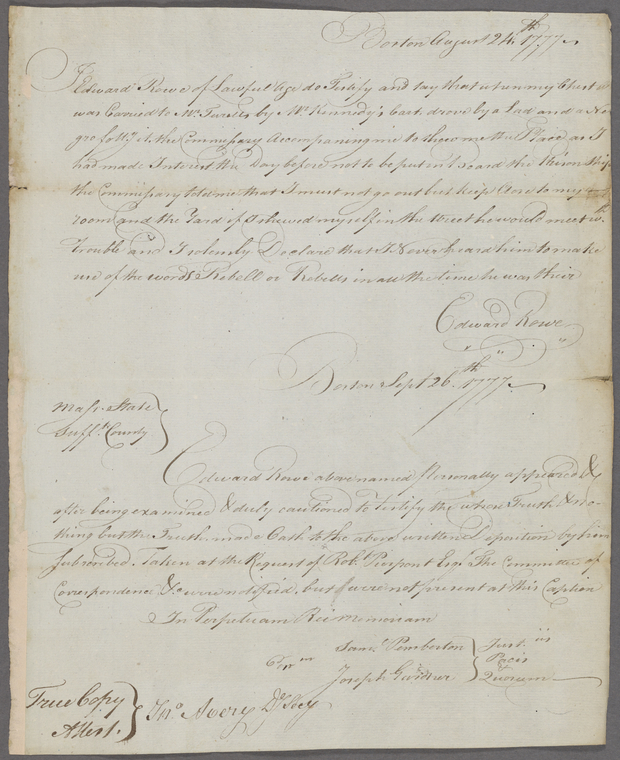 Boston August 24th. 1777
I Edward Rowe of Lawful Age do Testify and say that when my Chest
was Carried to Mr. Tuvells by Mr. Kennedy's Cart drove by a Lad and a Ne
gro follg. it. the Commissary Accompaning me to shew me the Place, as I
had made Interest the Day before not to be put on board the Prison Ship
the Commissary told me that I must not go out but keep Close to my
room and the Yard if I shewed myself in the Street he would meet wth.
Trouble and I solemnly Declare that I Never heard him to make
use of the words Rebell or Rebells in all the time he was their
Edward Rowe
Boston Sept. 26th. 1777.
Mass. State
Suffk. County
Edward Rowe above named personally appeared &
after being examined & duly cautioned to testify the whole Truth & no-
thing but the Truth made Oath to the above written Deposition by him
Subscribed. Taken at the Request of Robt. Pierpont Esqr. The Committee of
Correspondence &c were notified, but were not present at this Caption
In Perpetuam Rei memoriam
Saml. Pemberton
Joseph Gardner
Just.iis
Pacis
&
Quorum
True Copy
Attest.
Jno. Avery Dy. Secy